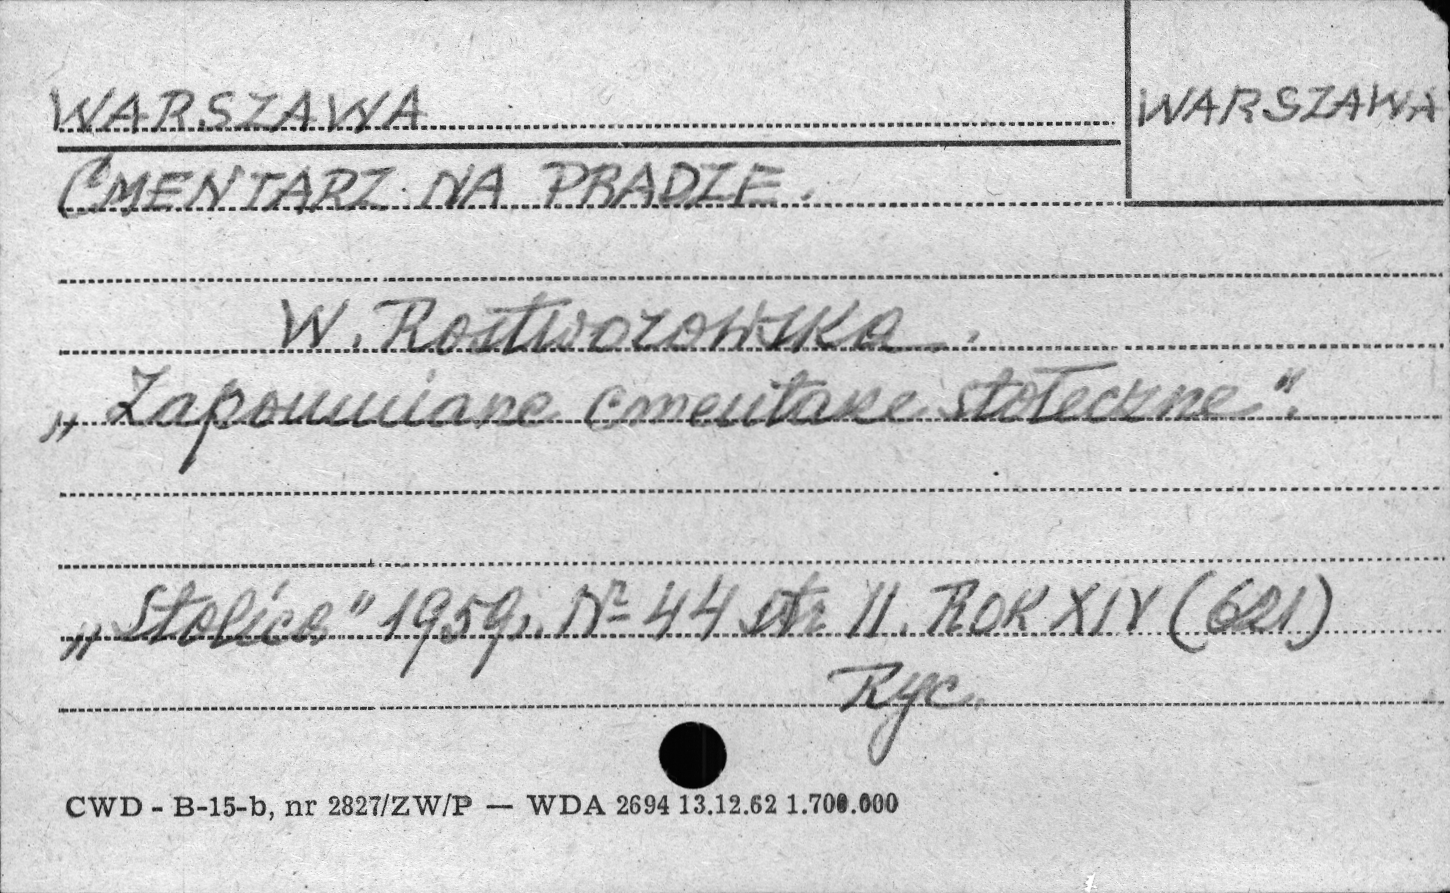 WARSZAWA
WARSZAWA
CMENTARZ NA PRADZE.
W. Rostworowska.
„Zapomniane cmentarze stołeczne".
„Stolica" 1959r. Nr 44 str 11. ROK XIV (621)
Ryc.
CWD - B-15-b, nr 2827/ZW/P — WDA 2694 13.12.62 1.700.000